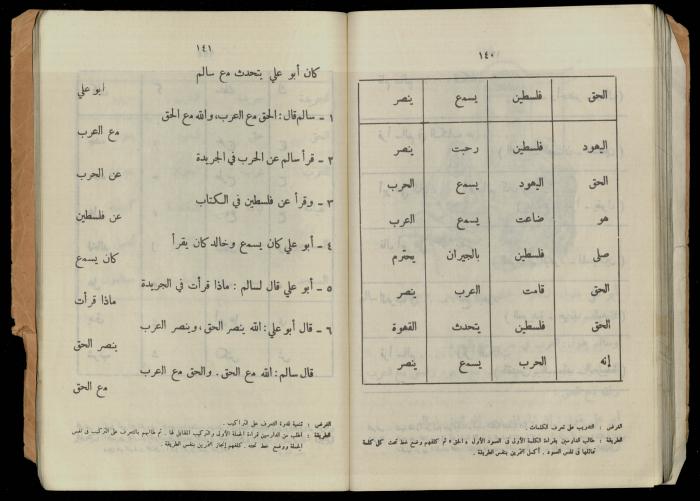 ١٤٠
الحق فلسطين يسمع ينصر
اليهود فلسطين رحبت ينصر
الحق اليهود يسمع الحرب
هو ضاعت يسمع العرب
صلى فلسطين بالجيران يحترم
الحق قامت العرب ينصر
الحق فلسطين يتحدث القهوة
إنه الحرب يسمع ينصر
الغرض : التدريب على تعرف الكلمات .
الطريقة : طالب الدارسين بقراءة الكلمة الأولى في العمود الأول « الحق » ثم كلفهم وضع خط تحت كل كلمة
تماثلها في نفس العمود . أكمل التمرين بنفس الطريقة .
١٤١
كان أبو علي يتحدث مع سالم
ابو علي
١ - سالم قال : الحق مع العرب، والله مع الحق
مع العرب
٢ - قرأ سالم عن الحرب في الجريدة
عن الحرب
٣ - وقرأ عن فلسطين في الكتاب
عن فلسطين
٤ - أبو علي كان يسمع وخالد كان يقرأ
كان يسمع
٥ - أبو علي قال لسالم : ماذا قرأت في الجريدة
ماذا قرأت
٦ - قال أبو علي : الله ينصر الحق، وينصر العرب
ينصر الحق
قال سالم : الله مع الحق . والحق مع العرب
مع الحق
الغرض : تنمية قدرة التعرف على التراكيب .
الطريقة : أطلب من الدارسين قراءة الجملة الأولى والتركيب المقابل لها . ثم طالبهم بالتعرف على التركيب في نفس
الجملة ووضع خط تحته . كلفهم إنجاز التمرين بنفس الطريقة .